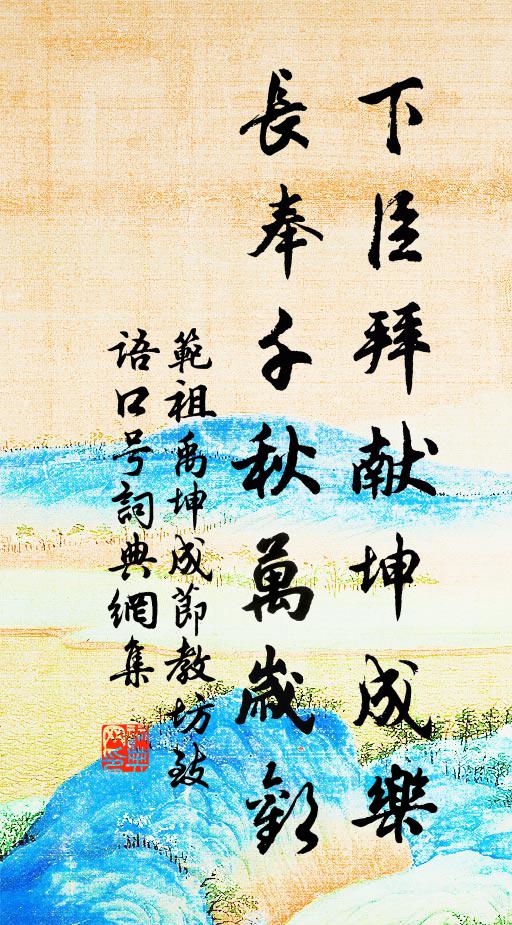 下臣拜献坤成樂
長奉千秋萬歲歡
範祖禹坤成節教坊致
语口号詞典網集